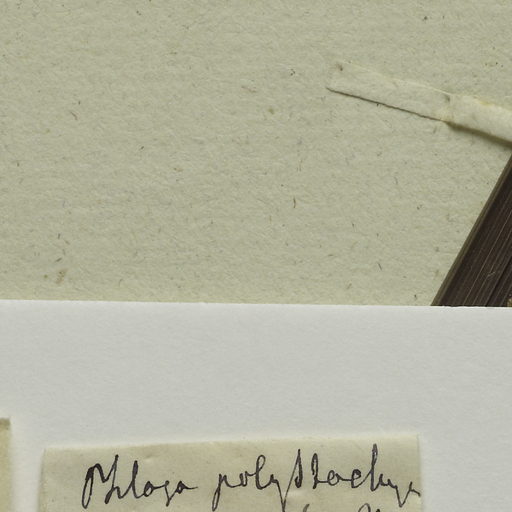 Phloga polystachya